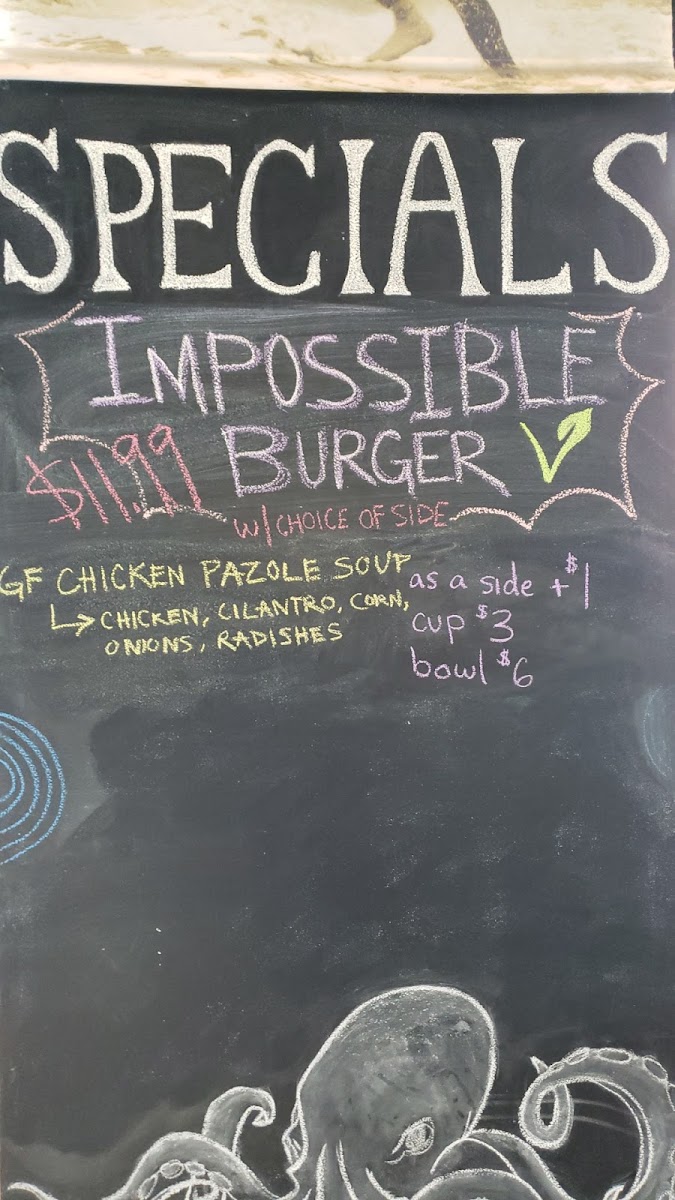 SPECIALS
IMPOSSIBLE
BURGER
$11.99
w/CHOICE OF SIDE
GF CHICKEN PAZOLE SOUP
↳ CHICKEN, CILANTRO, CORN,
ONIONS, RADISHES
as a side +$1
cup $3
bowl $6